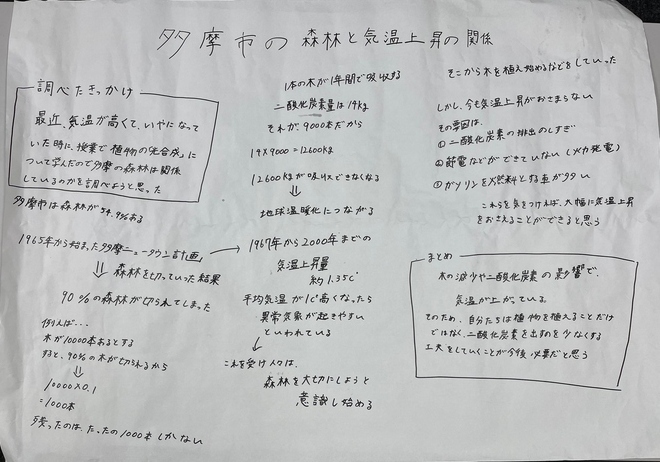 多摩市の 森林と気温上昇の関係
調べたきっかけ
最近、気温が高くて、いやになって
いた時に、授業で「植物の光合成」に
ついて学んだので多摩の森林は関係
しているのかを調べようと思った
多摩市は森林が54.9%ある
1965年から始まった多摩ニュータウン計画」
⇓ 森林を切っていった結果
90%の森林が切られてしまった
例えば…
木が10000本あるとする
すると、90%の木が切られるから
⇓
10000×0.1
=1000本
残ったのは、たったの1000本しかない
1本の木が1年間で吸収する
二酸化炭素量は14kg
それが、9000本だから
14×9000=12600kg
12600kgが吸収できなくなる
⇓
地球温暖化につながる
→ 1967年から2000年までの
気温上昇量
約1.35℃
平均気温が1℃高くなったら
異常気象が起きやすい
といわれている
↓
これを受け人々は、
森林を大切にしようと
意識し始める
そこから木を植え始めるなどをしていった
しかし、今も気温上昇がおさまらない
その要因は、
①二酸化炭素の排出のしすぎ
②節電などができていない(火力発電)
③ガソリンを燃料とする車が多い
これらを気をつければ、大幅に気温上昇
をおさえることができると思う
まとめ
木の減少や二酸化炭素の影響で、
気温が上がっている。
そのため、自分たちは植物を植えることだけ
ではなく、二酸化炭素を出す量を少なくする
工夫をしていくことが今後必要だと思う